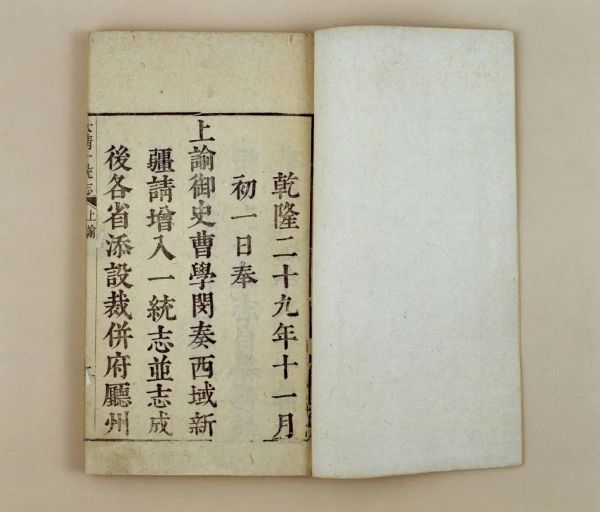 乾隆二十九年十一月
初一日奉
上諭御史曹學閔奏西域新
疆請增入一統志並志成
後各省添設裁併府廳州
大清一統志
上諭